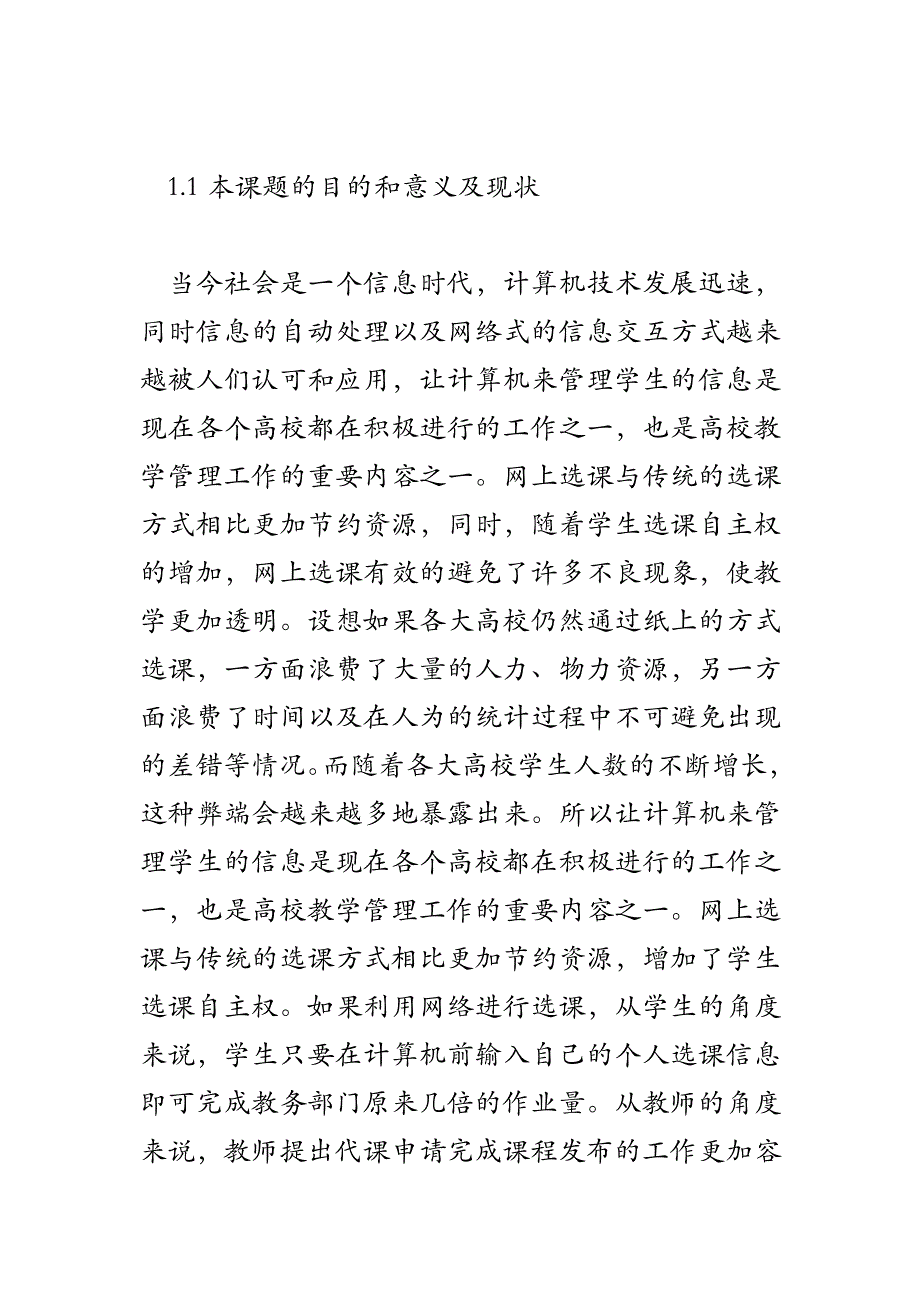 1.1 本课题的目的和意义及现状
当今社会是一个信息时代，计算机技术发展迅速，
同时信息的自动处理以及网络式的信息交互方式越来
越被人们认可和应用，让计算机来管理学生的信息是
现在各个高校都在积极进行的工作之一，也是高校教
学管理工作的重要内容之一。网上选课与传统的选课
方式相比更加节约资源，同时，随着学生选课自主权
的增加，网上选课有效的避免了许多不良现象，使教
学更加透明。设想如果各大高校仍然通过纸上的方式
选课，一方面浪费了大量的人力、物力资源，另一方
面浪费了时间以及在人为的统计过程中不可避免出现
的差错等情况。而随着各大高校学生人数的不断增长，
这种弊端会越来越多地暴露出来。所以让计算机来管
理学生的信息是现在各个高校都在积极进行的工作之
一，也是高校教学管理工作的重要内容之一。网上选
课与传统的选课方式相比更加节约资源，增加了学生
选课自主权。如果利用网络进行选课，从学生的角度
来说，学生只要在计算机前输入自己的个人选课信息
即可完成教务部门原来几倍的作业量。从教师的角度
来说，教师提出代课申请完成课程发布的工作更加容